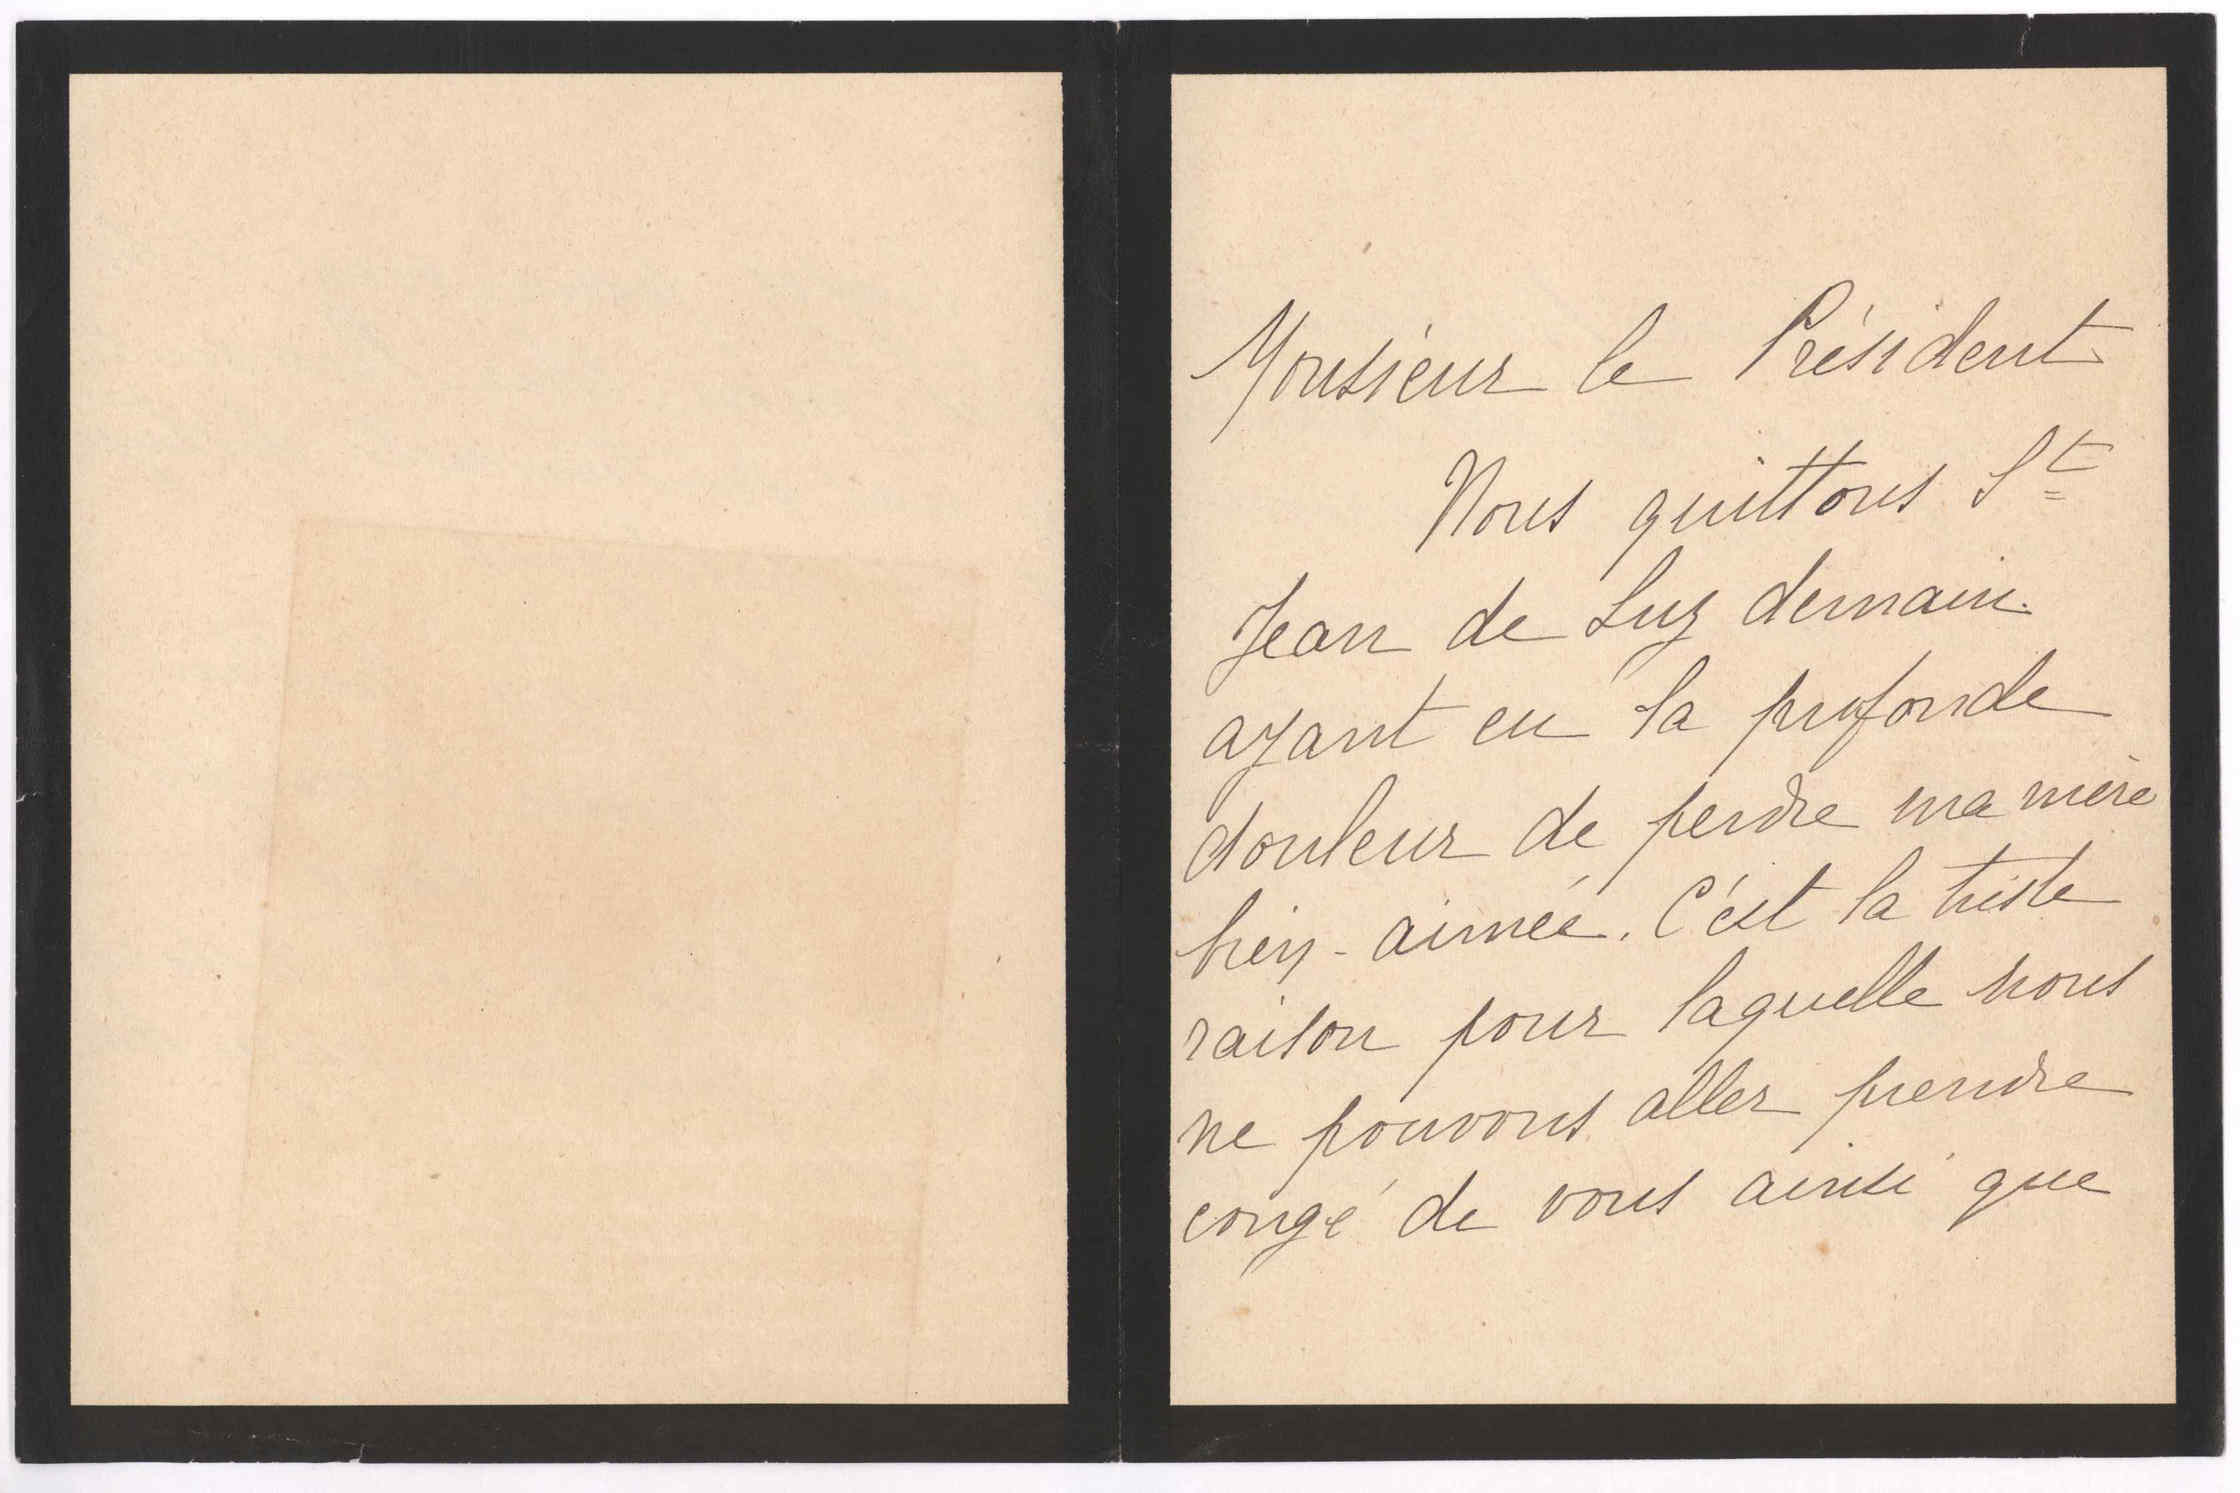 Monsieur le Président
Nous quittons St
Jean de Luz demain
ayant eu la profonde
douleur de perdre ma mère
bien-aimée. C'est la triste
raison pour laquelle nous
ne pouvons aller prendre
congé de vous ainsi que